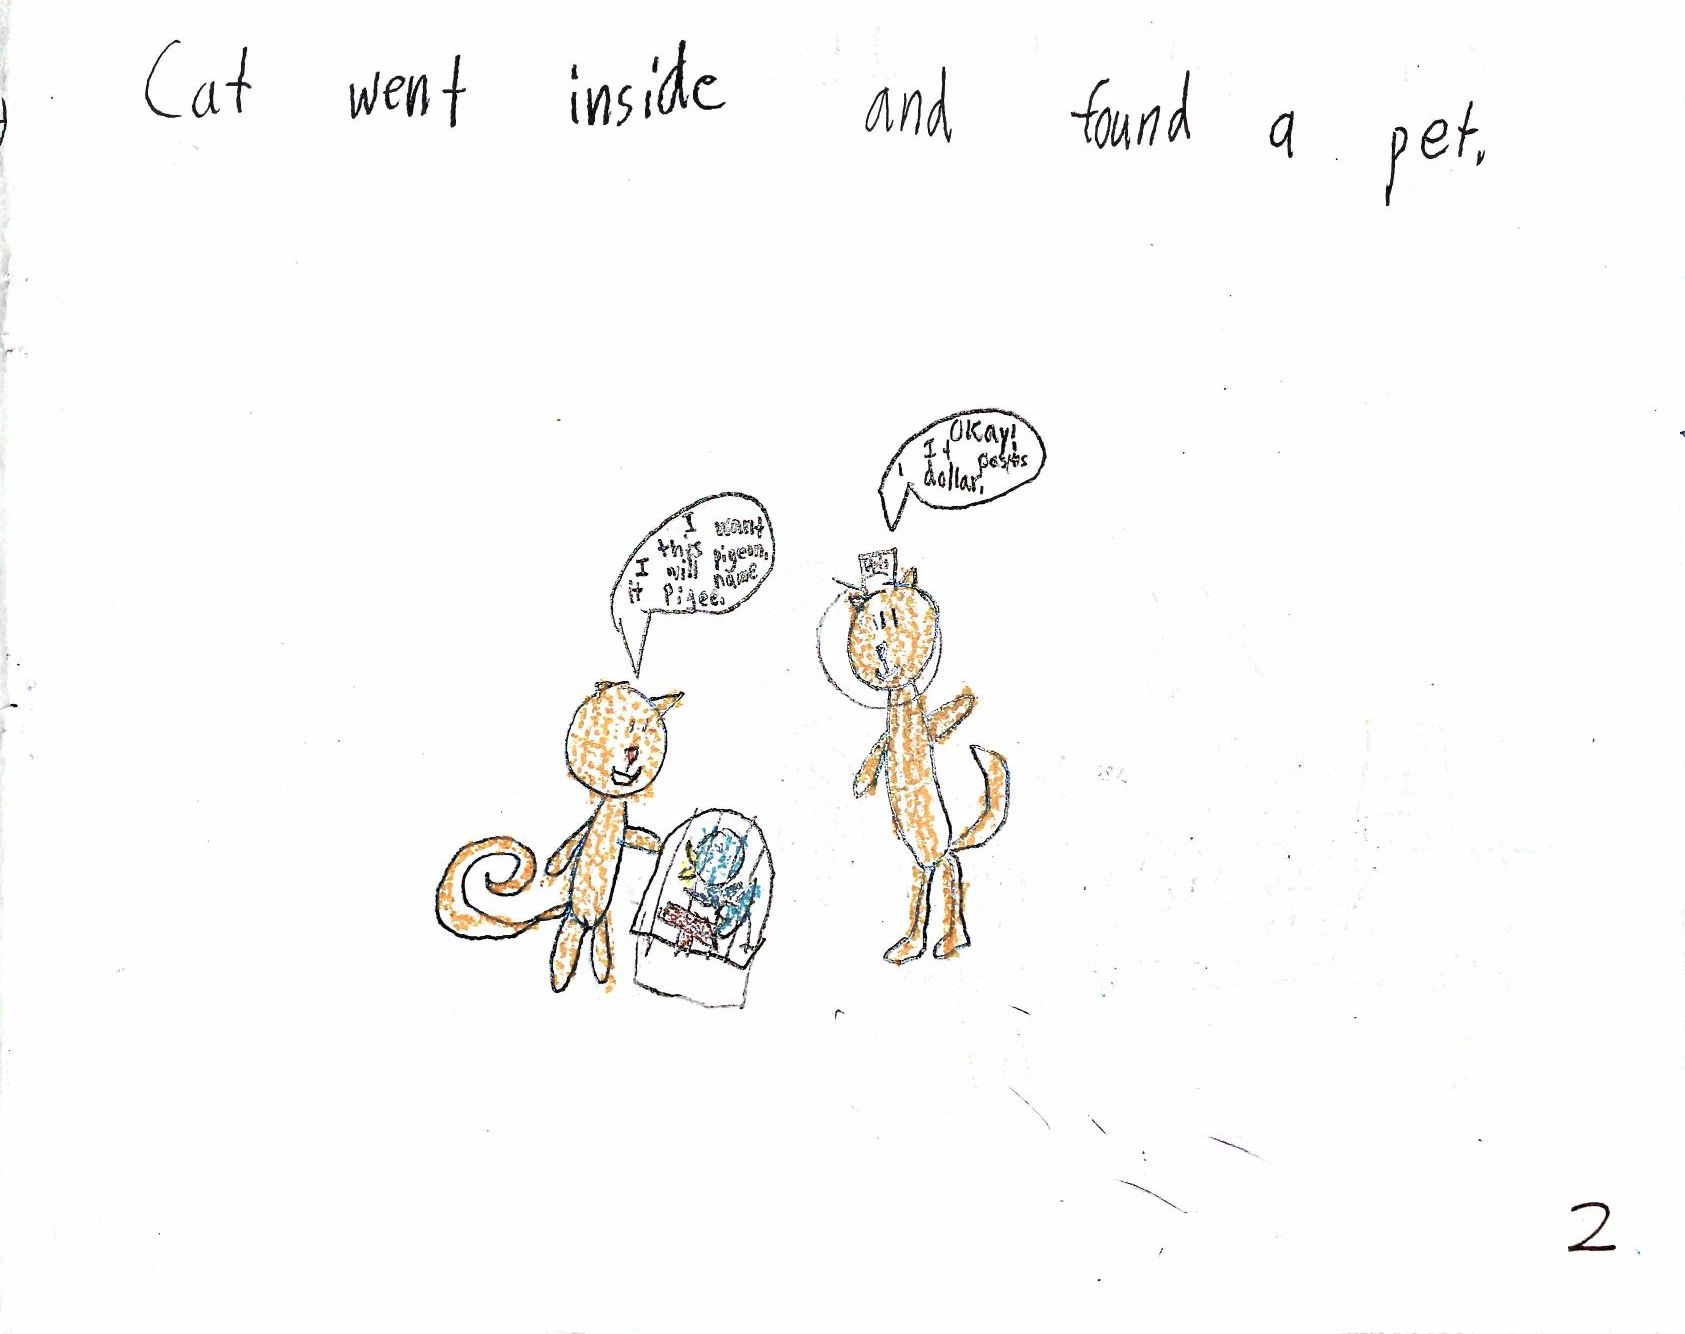 Cat went inside and found a pet.
I want
this pigeon.
I will name
it Pigee.
Okay!
It costs
1 dollar.
2